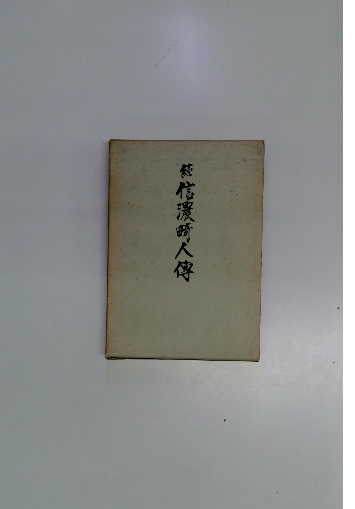 続信濃畸人傳